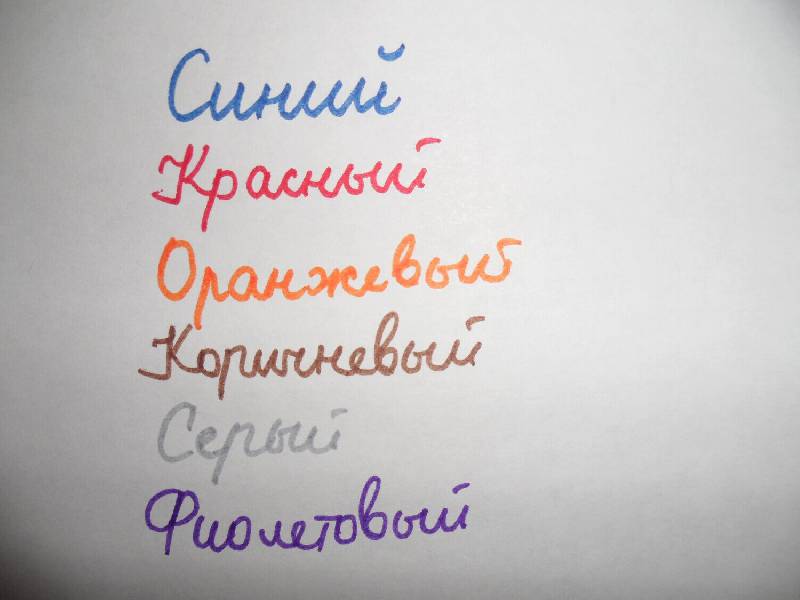 Синий
Красный
Оранжевый
Коричневый
Серый
Фиолетовый